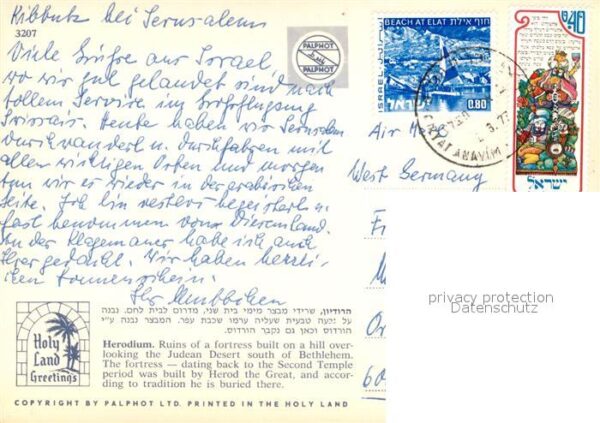 Kibbutz bei Jerusalem
3207
PALPHOT
PALPHOT
Viele Grüße aus Israel
wo wir gut gelandet sind nach
tollem Service im Großflugzeug
Swissair. Heute haben wir Jerusalem
durchwandert u. durchfahren mit
allen wichtigen Orten und morgen
tun wir es wieder in der arabischen
Seite. Ich bin restlos begeistert u.
fast benommen vom Diesem Land.
An der Klagemauer habe ich auch
Ihrer gedacht. Wir haben herrli-
chen Sonnenschein.
Ihr
BEACH AT ELAT חוף אילת
ISRAEL
ישראל
0.80
0.40
ישראל
QIRYAT ANAVIM
Air Mail
West Germany
privacy protection
Datenschutz
הרודיון, שרידי מבצר מימי בית שני, מדרום לבית לחם. נבנה
על גבעה טבעית שעליה ערמו שכבת עפר. המבצר נבנה ע״י
הורדוס וכאן גם נקבר הורדוס.
Holy
Land
Greetings
Herodium. Ruins of a fortress built on a hill over-
looking the Judean Desert south of Bethlehem.
The fortress — dating back to the Second Temple
period was built by Herod the Great, and accor-
ding to tradition he is buried there.
COPYRIGHT BY PALPHOT LTD. PRINTED IN THE HOLY LAND